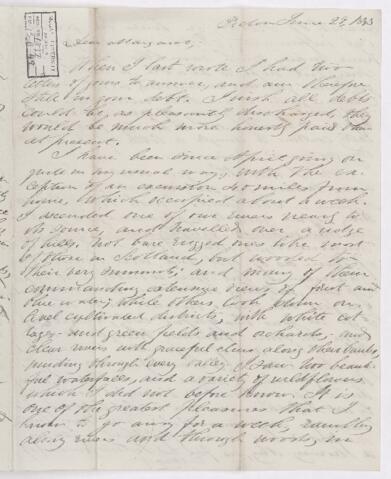 Pictou June 29, 1843
Dear Margaret,
When I last wrote I had two
letters of yours to answer, and am therefore
still in your debt. I wish all debts
could be, as pleasantly discharged, they
would be much more honestly paid than
at present.
I have been since April going on
quite in my usual way, with the ex-
ception of an excursion 40 miles from
home, which occupied about a week.
I ascended one of our rivers nearly to
its source, and travelled over a ridge
of hills, not bare rugged ones like most
of those in Scotland, but wooded to
their very summits, and many of them
commanding extensive views of forest and
blue water, while others look down on
cultivated districts, with white cot-
tages and green fields and orchards, and
clear rivers with graceful elms along their banks,
winding through every valley. I saw two beauti-
ful waterfalls, and a variety of wildflowers
which I did not before know. It is
one of the greatest pleasures that I
know to go away for a week, rambling
along rivers and through woods, in